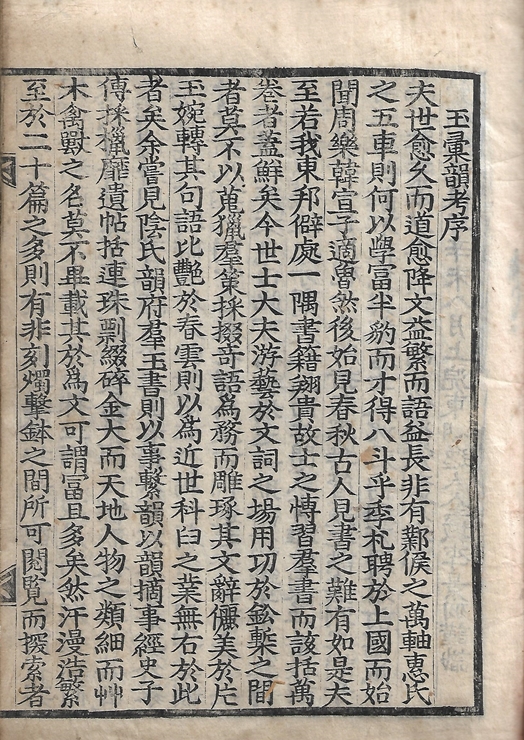 玉彙韻考序
夫世愈久而道愈降文益繁而語益長非有鄴侯之萬軸惠氏
之五車則何以學富半豹而才得八斗乎季札聘於上國而始
聞周樂韓宣子適魯然後始見春秋古人見書之難有如是夫
至若我東邦僻處一隅書籍翔貴故士之慱習羣書而該括萬
卷者蓋鮮矣今世士大夫游藝於文詞之場用功於鈆槧之間
者莫不以蒐獵羣策採掇奇語爲務而雕琢其文辭儷美於片
玉婉轉其句語比艷於春雲則以為近世科臼之業無右於此
者矣余嘗見陰氏韻府羣玉書則以事繫韻以韻摘事經史子
傳採獵靡遺帖括連珠剽綴碎金大而天地人物之類細而艸
木禽獸之名莫不畢載其於爲文可謂富且多矣然汗漫浩繁
至於二十篇之多則有非刻燭擊鉢之間所可閱覧而探索者